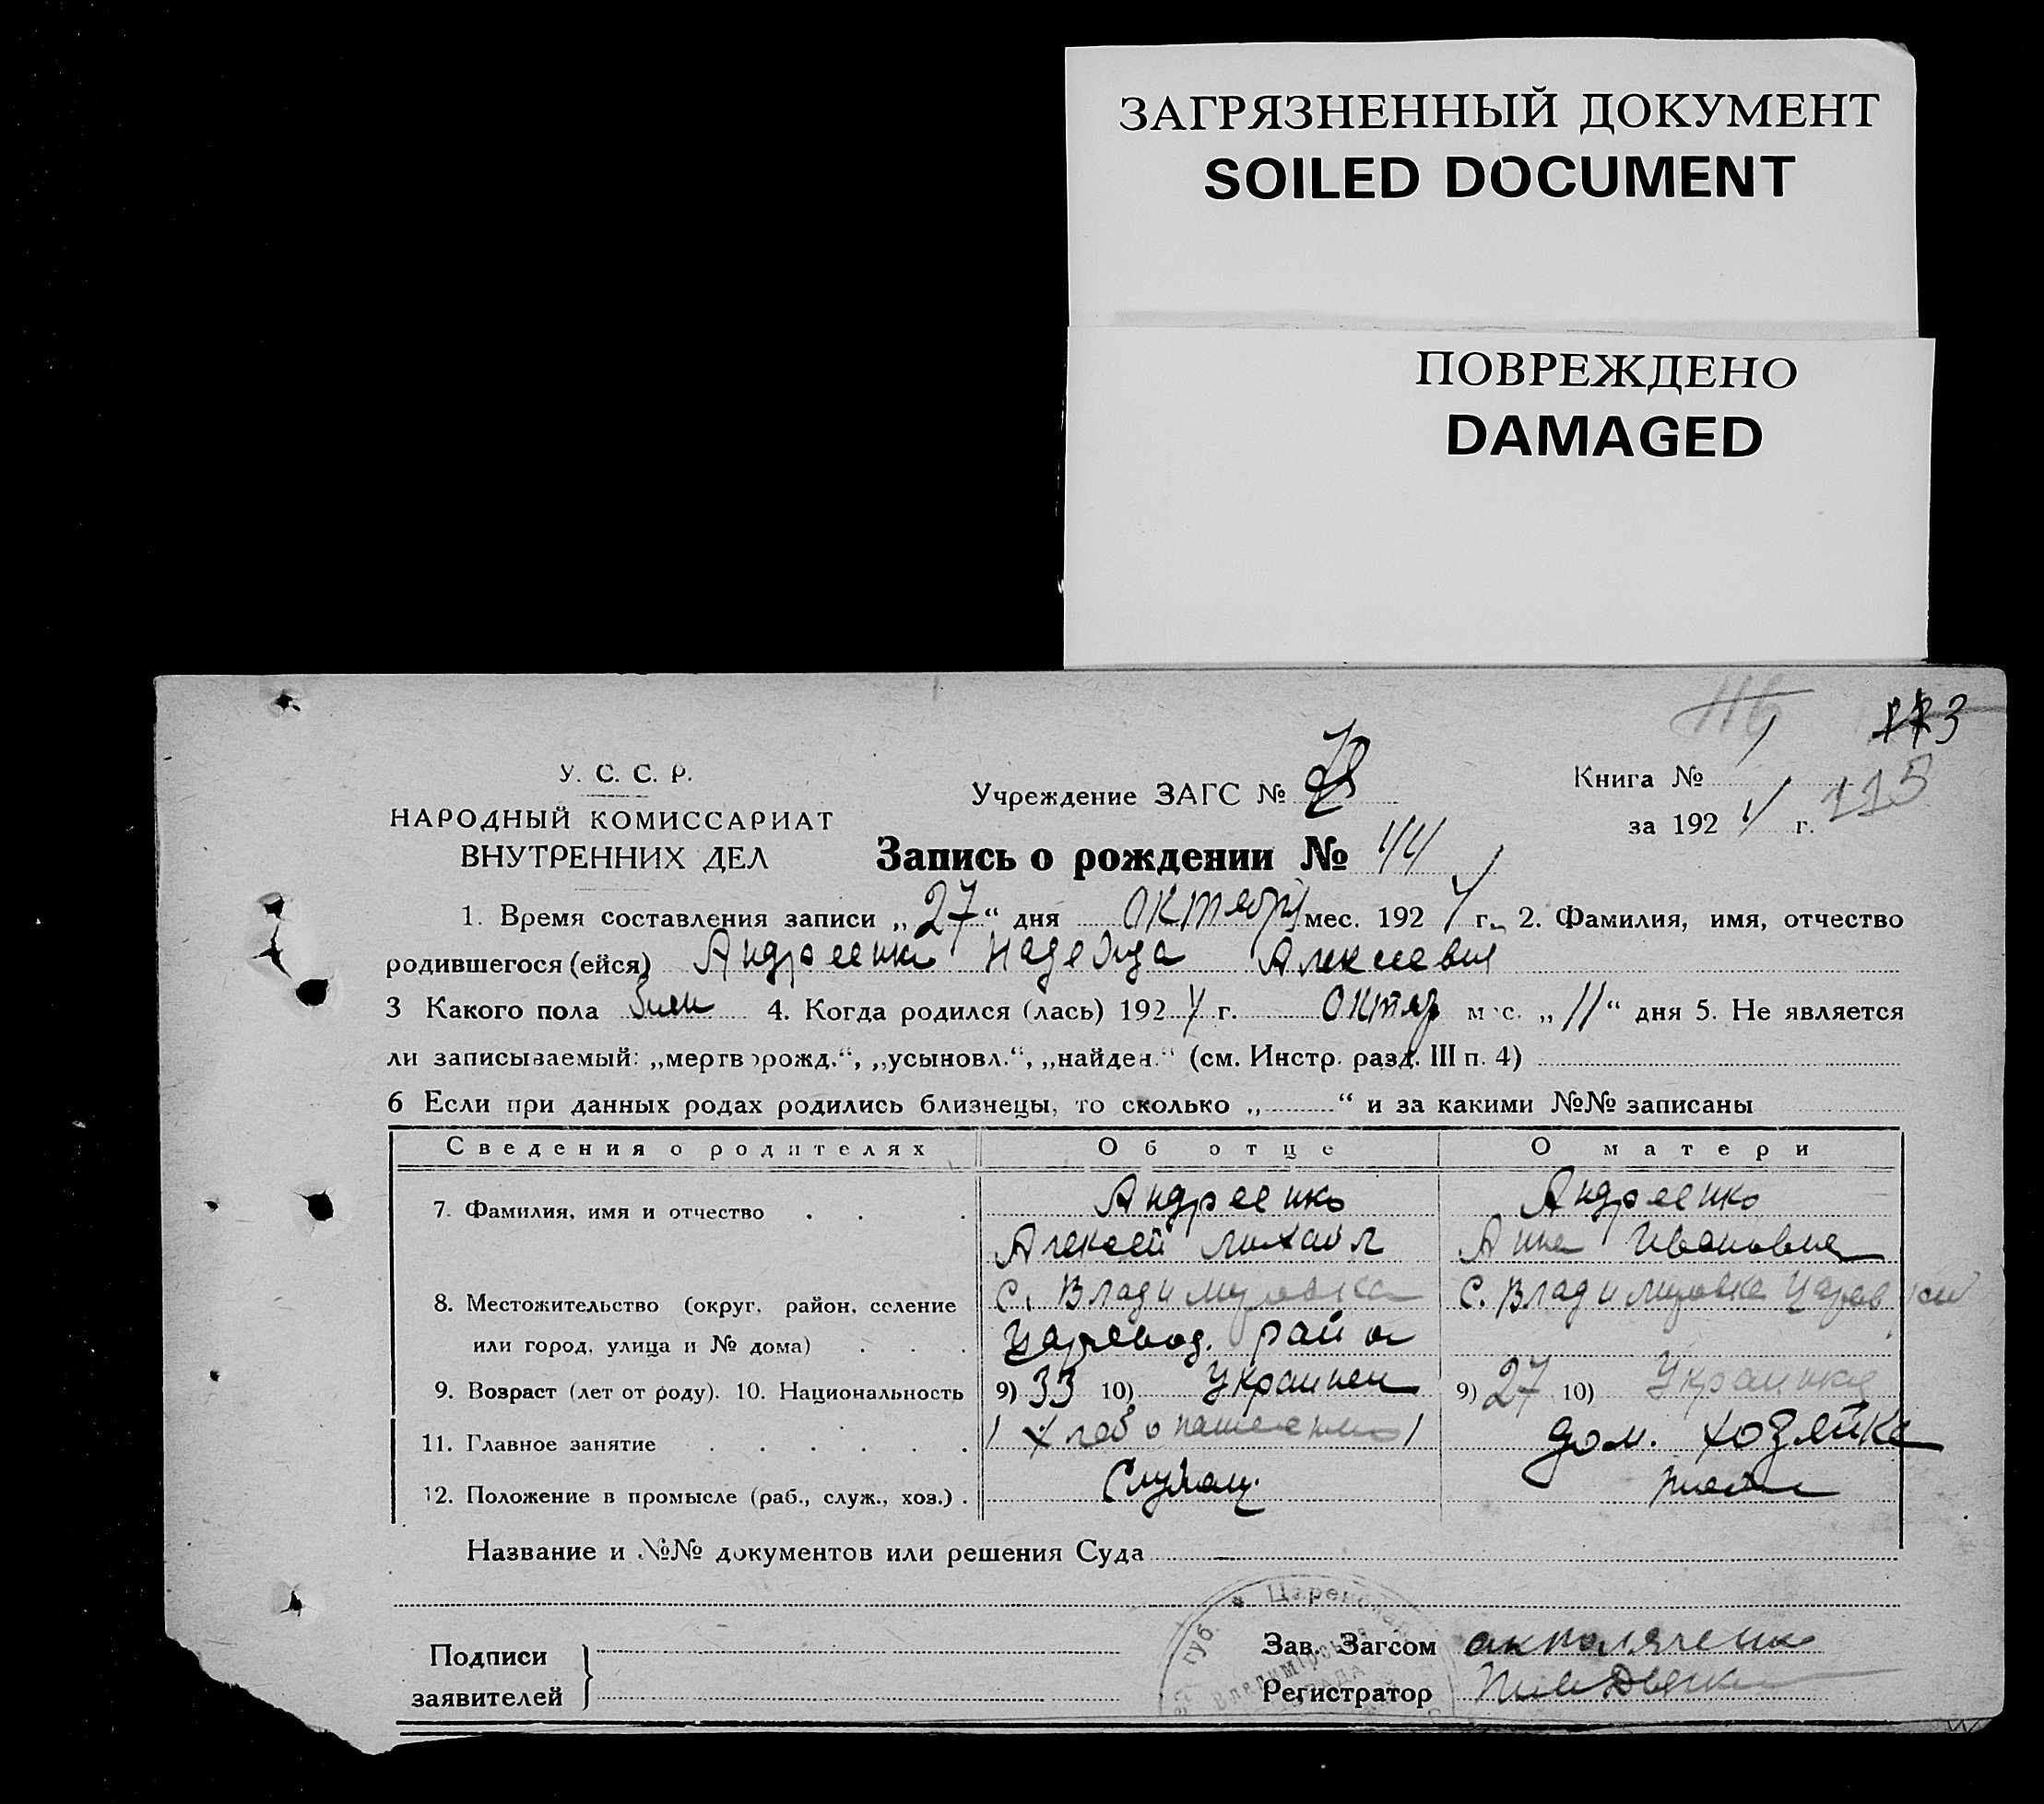 ЗАГРЯЗНЕННЫЙ ДОКУМЕНТ
SOILED DOCUMENT
ПОВРЕЖДЕНО
DAMAGED
116
113
115
У. С. С. Р.
НАРОДНЫЙ КОМИССАРИАТ
ВНУТРЕННИХ ДЕЛ
Учреждение ЗАГС №
Книга № 1
за 192 4 г.
Запись о рождении № 44
1. Время составления записи „27“ дня октября мес. 192 4 г. 2. Фамилия, имя, отчество
родившегося (ейся) Андреенко Надежда Алексеевна
3 Какого пола жен 4. Когда родился (лась) 192 4 г. октяр мес. „11“ дня 5. Не является
ли записываемый: „мертворожд.“, „усыновл.“, „найден.“ (см. Инстр. разд. III п. 4)
6 Если при данных родах родились близнецы, то сколько „ “ и за какими №№ записаны
Сведения о родителях Об отце О матери
7. Фамилия, имя и отчество Андреенко Андреенко
Алексей Михайл Анна Ивановна
8. Местожительство (округ, район, селение с. Владимировка с. Владимировка
или город, улица и № дома) район
9. Возраст (лет от роду). 10. Национальность 9) 33 10) Украинец 9) 27 10) Украинка
11. Главное занятие дом. хозяйка
12. Положение в промысле (раб., служ., хоз.)
Название и №№ документов или решения Суда
Подписи
заявителей
Зав. Загсом
Регистратор